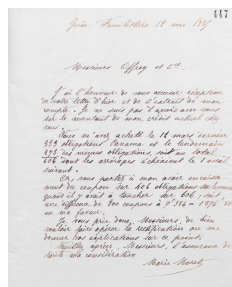 447
Guise, Familistère 29 mai 1895
Messieurs Offroy et Cie
J'ai l'honneur de vous accuser réception
de votre lettre d'hier et de l'extrait de mon
compte. Je ne suis pas d'accord avec vous
sur le montant de mon crédit actuel chez
vous.
Vous m'avez acheté le 12 mars dernier
333 obligations Panama et le lendemain
273 des mêmes obligations, soit au total
606 dont les arrérages échéaient le 1 avril
suivant.
Or, vous portez à mon avoir encaisse-
ment du coupon sur 406 obligations seulement
quand il y avait à toucher sur 606, soit
une différence de 200 coupons à
en ma faveur.
Je vous prie donc, Messieurs, de bien
vouloir faire opérer la rectification ou me
donner vos explications sur ce point.
Veuillez agréer, Messieurs, l'assurance de
toute ma considération
Marie Moret